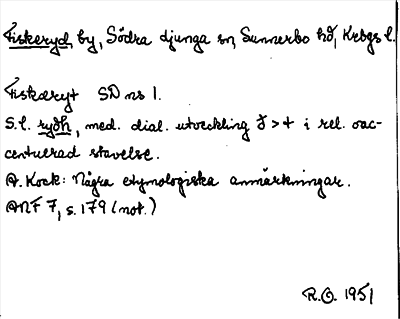 Fiskeryd, by, Södra Ljunga sn, Sunnerbo hd, Krbgs l.
Fiskæryt SD ns 1.
S.l. rydh, med. dial. utveckling ð > t i rel. oac-
centuerad stavelse.
A. Kock: Några etymologiska anmärkningar.
ANF 7, s. 179 (not.)
R.O. 1951